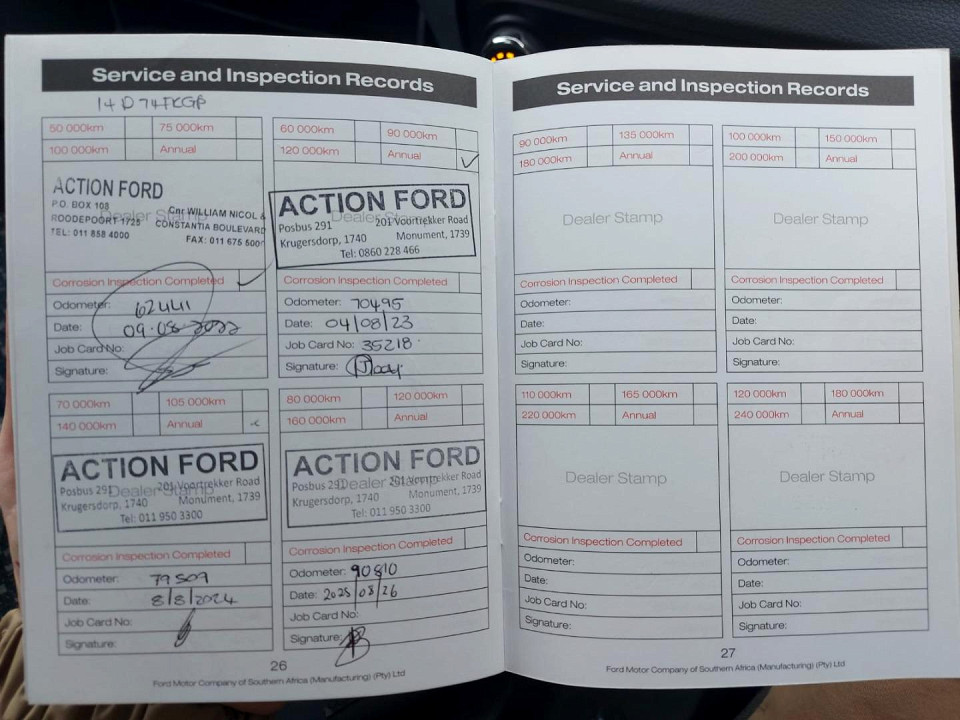 Service and Inspection Records
14 D 74 FKGP
50 000km 75 000km
100 000km Annual
ACTION FORD
P.O. BOX 108
ROODEPOORT 1725
TEL: 011 858 4000
Cnr WILLIAM NICOL &
CONSTANTIA BOULEVARD
FAX: 011 675 500
Dealer Stamp
Corrosion Inspection Completed ✓
Odometer: 62441
Date: 09.08-2022
Job Card No:
Signature:
60 000km 90 000km
120 000km Annual ✓
ACTION FORD
Dealer Stamp
Posbus 291 201 Voortrekker Road
Krugersdorp, 1740 Monument, 1739
Tel: 0860 228 466
Corrosion Inspection Completed
Odometer: 70495
Date: 04/08/23
Job Card No: 35218
Signature:
70 000km 105 000km
140 000km Annual
ACTION FORD
Dealer Stamp
Posbus 291 201 Voortrekker Road
Krugersdorp, 1740 Monument, 1739
Tel: 011 950 3300
Corrosion Inspection Completed
Odometer: 79509
Date: 8/8/2024
Job Card No:
Signature:
80 000km 120 000km
160 000km Annual
ACTION FORD
Dealer Stamp
Posbus 291 201 Voortrekker Road
Krugersdorp, 1740 Monument, 1739
Tel: 011 950 3300
Corrosion Inspection Completed
Odometer: 90810
Date: 2025/08/26
Job Card No:
Signature:
26
Ford Motor Company of Southern Africa (Manufacturing) (Pty) Ltd
Service and Inspection Records
90 000km 135 000km
180 000km Annual
Dealer Stamp
Corrosion Inspection Completed
Odometer:
Date:
Job Card No:
Signature:
100 000km 150 000km
200 000km Annual
Dealer Stamp
Corrosion Inspection Completed
Odometer:
Date:
Job Card No:
Signature:
110 000km 165 000km
220 000km Annual
Dealer Stamp
Corrosion Inspection Completed
Odometer:
Date:
Job Card No:
Signature:
120 000km 180 000km
240 000km Annual
Dealer Stamp
Corrosion Inspection Completed
Odometer:
Date:
Job Card No:
Signature:
27
Ford Motor Company of Southern Africa (Manufacturing) (Pty) Ltd